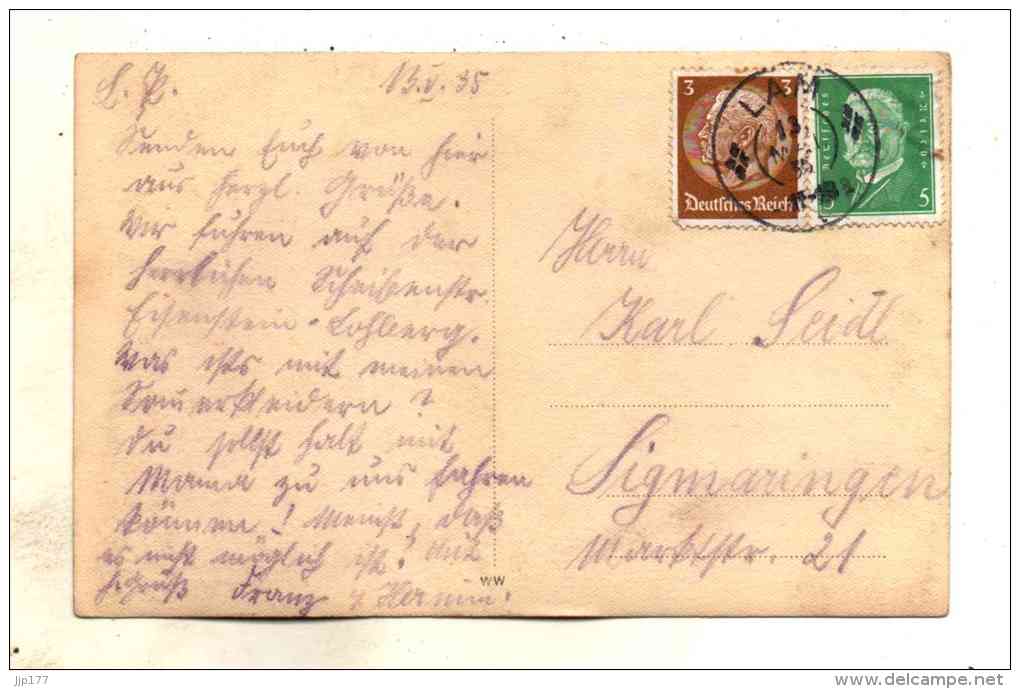 L. P. 13.V.35
Senden Euch von hier
aus herzl. Grüße.
Wir fuhren auf der
herrlichen
Eisenstein-Lohberg.
Was ists mit meinen
Du sollst halt mit
Mama zu uns fahren
können! Meinst, daß
es nicht möglich ist?
h. Gruß Franz
WW
3 3
Deutsches Reich
LAM
13
35
5
Herrn
Karl Seidl
Sigmaringen
Marktstr. 21
jjp177
www.delcampe.net